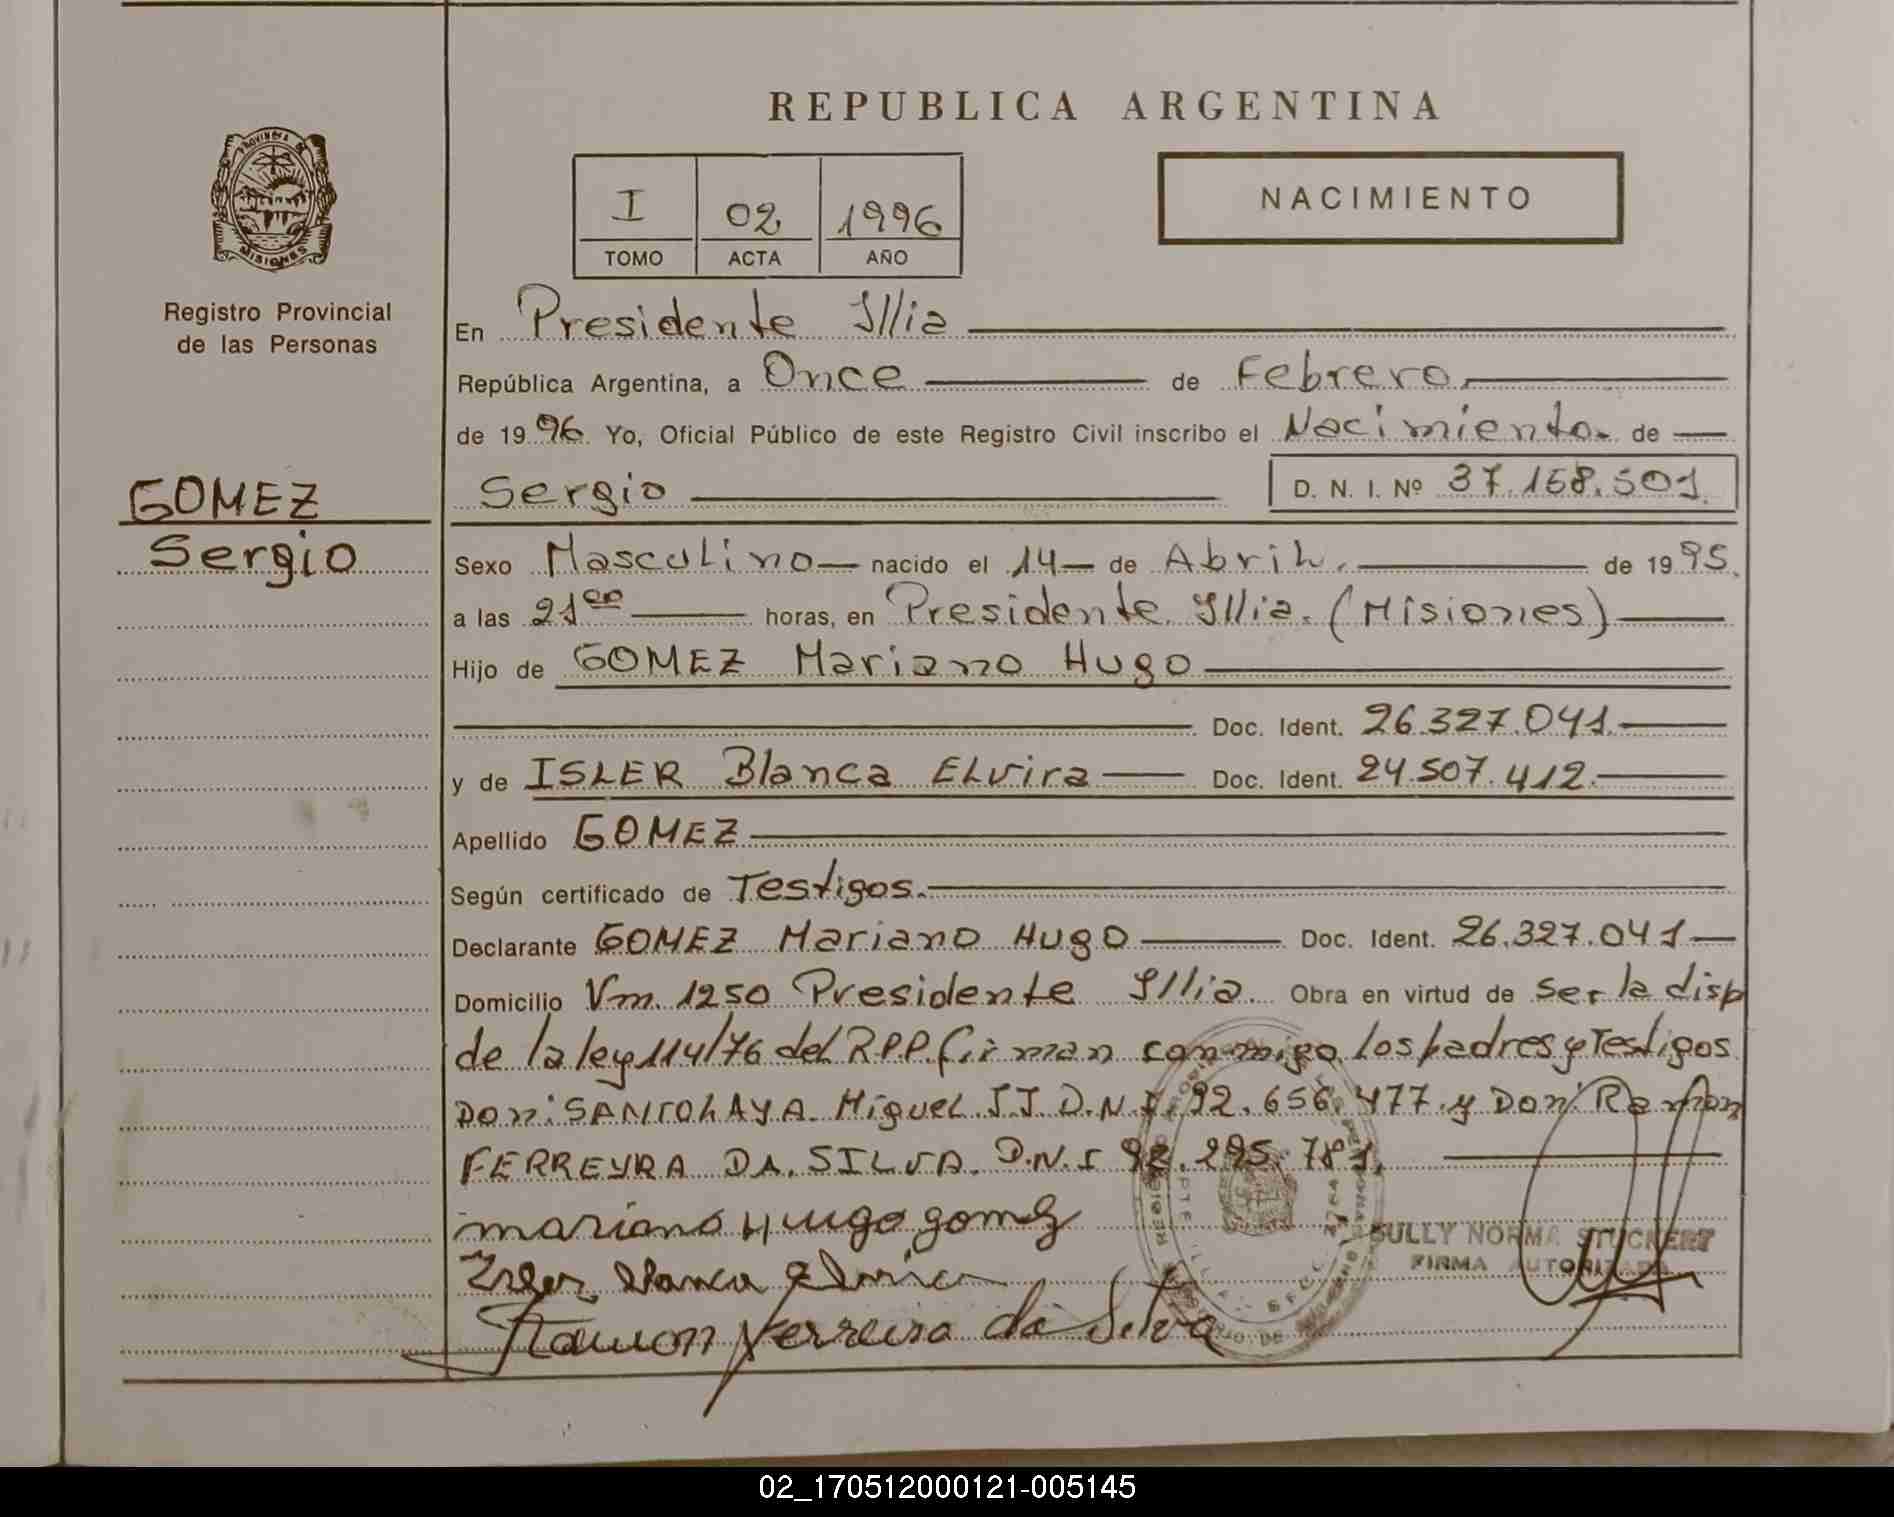 REPUBLICA ARGENTINA
PROVINCIA DE
MISIONES
Registro Provincial
de las Personas
I 02 1996
TOMO ACTA AÑO
NACIMIENTO
En Presidente Illia
República Argentina, a Once de Febrero
de 1996 Yo, Oficial Público de este Registro Civil inscribo el Nacimiento de
Sergio D. N. I. Nº 37.168.501
GOMEZ
Sergio
Sexo Masculino nacido el 14 de Abril. de 1995.
a las 21 00 horas, en Presidente Illia. (Misiones)
Hijo de GOMEZ Mariano Hugo
Doc. Ident. 26.327.041.
y de ISLER Blanca Elvira Doc. Ident. 24.507.412.
Apellido GOMEZ
Según certificado de Testigos.
Declarante GOMEZ Mariano Hugo Doc. Ident. 26.327.041
Domicilio Vm. 1250 Presidente Illia. Obra en virtud de Ser la disp
de la ley 114/76 del R.P.P. firman conmigo los padres y Testigos
Don: SANTOLAYA Miguel J J D.N.I. 92.656.477 y Don: Ramon
FERREYRA DA SILVA D.N.I 92.295.781.
mariano Hugo gomez
Isler blanca Elvira
SULLY NORMA STUCKERT
FIRMA AUTORIZADA
Ramon ferreira da Silva
02_170512000121-005145